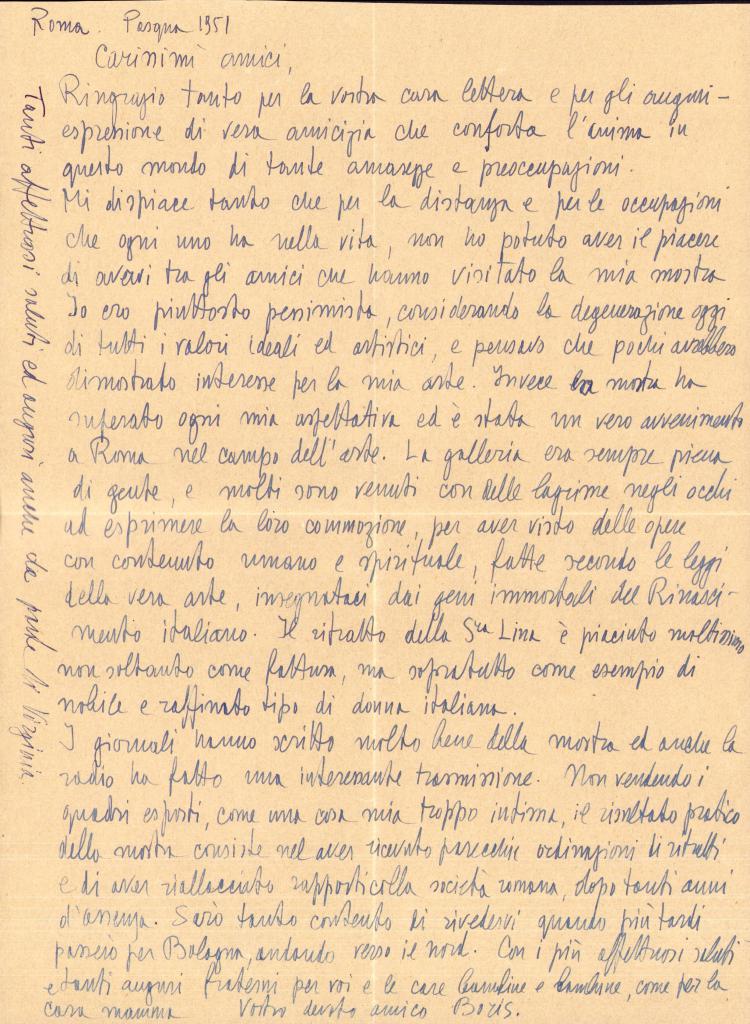 Roma. Pasqua 1951
Carissimi amici,
Ringrazio tanto per la vostra cara lettera e per gli auguri –
espressione di vera amicizia che conforta l'anima in
questo mondo di tante amarezze e preoccupazioni.
Mi dispiace tanto che per la distanza e per le occupazioni
che ogni uno ha nella vita, non ho potuto aver il piacere
di avervi tra gli amici che hanno visitato la mia mostra
Io ero piuttosto pessimista, considerando la degenerazione oggi
di tutti i valori ideali ed artistici, e pensavo che pochi avrebbero
dimostrato interesse per la mia arte. Invece la mostra ha
superato ogni mia aspettativa ed è stata un vero avvenimento
a Roma nel campo dell'arte. La galleria era sempre piena
di gente, e molti sono venuti con delle lagrime negli occhi
ad esprimere la loro commozione, per aver visto delle opere
con contenuto umano e spirituale, fatte secondo le leggi
della vera arte, insegnataci dai geni immortali del Rinasci-
mento italiano. Il ritratto della Sra Lina è piaciuto moltissimo
non soltanto come fattura, ma sopratutto come esempio di
nobile e raffinato tipo di donna italiana.
I giornali hanno scritto molto bene della mostra ed anche la
radio ha fatto una interessante trasmissione. Non vendendo i
quadri esposti, come una cosa mia troppo intima, il risultato pratico
della mostra consiste nel aver ricevuto parecchie ordinazioni di ritratti
e di aver riallacciato rapporti colla società romana, dopo tanti anni
d'assenza. Sarò tanto contento di rivedervi quando più tardi
passerò per Bologna, andando verso il nord. Con i più affettuosi saluti
e tanti auguri fraterni per voi e le care bambine e bambine, come per la
cara mamma Vostro devoto amico Boris.
Tanti affettuosi saluti ed auguri anche da parte di Virginia.